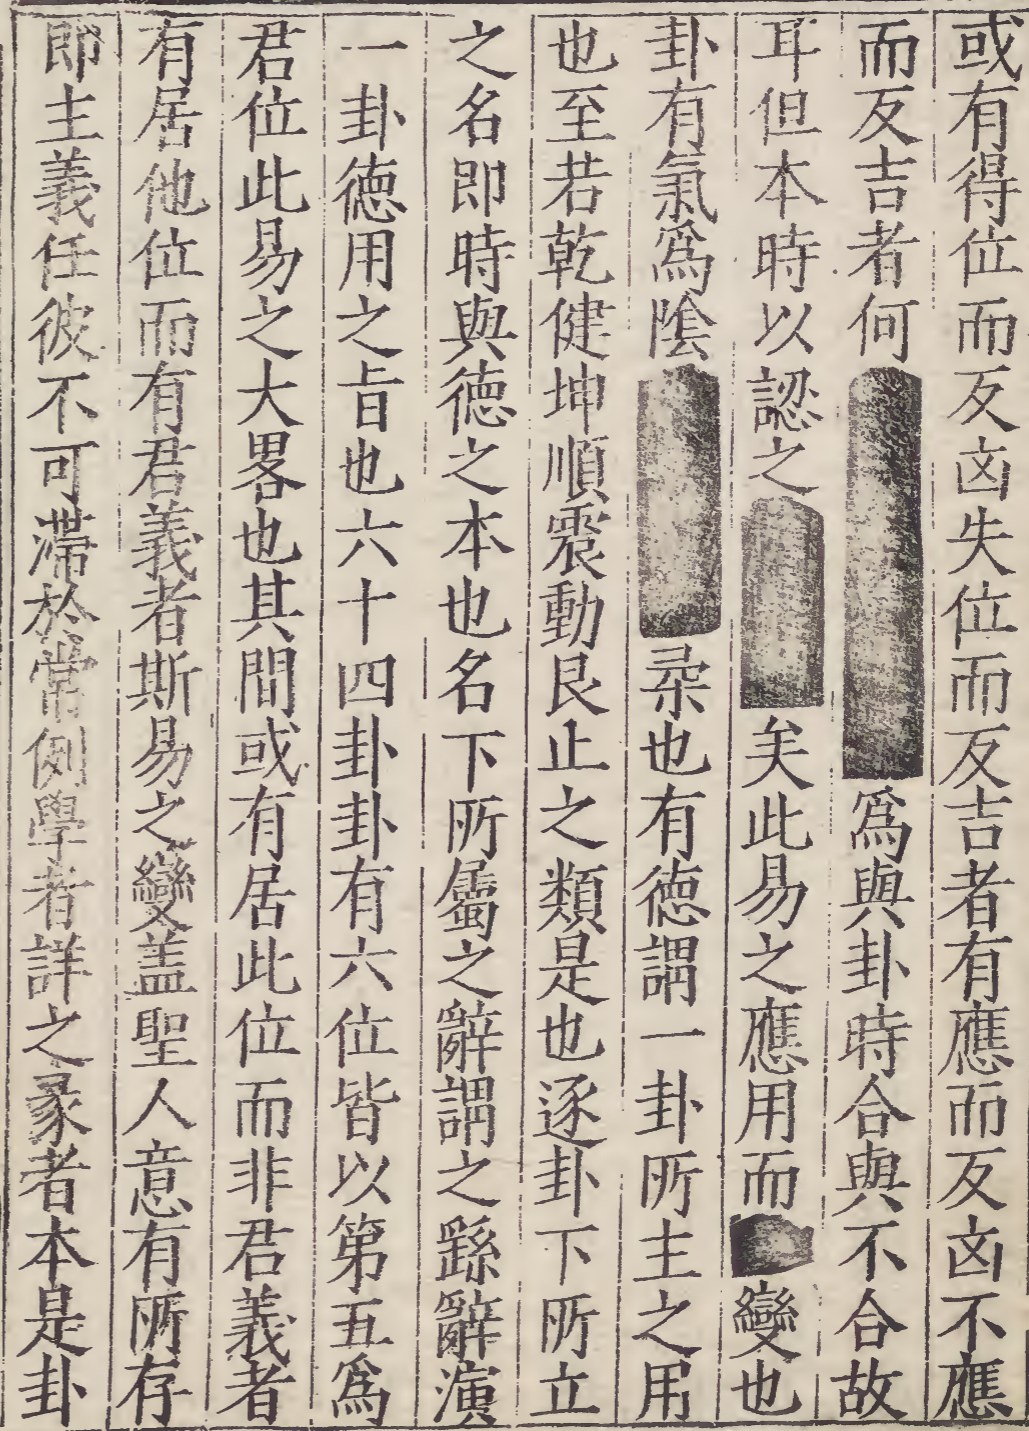 或有得位而反凶失位而反吉者有應而反凶不應
而反吉者何爲與卦時合與不合故
耳但本時以認之矣此易之應用而變也
卦有氣爲陰柔也有德謂一卦所主之用
也至若乾健坤順震動艮止之類是也逐卦下所立
之名即時與德之本也名下所屬之辭謂之繇辭演
一卦德用之旨也六十四卦卦有六位皆以第五爲
君位此易之大畧也其間或有居此位而非君義者
有居他位而有君義者斯易之變盖聖人意有所存
即主義任彼不可滯於常例學者詳之彖者本是卦